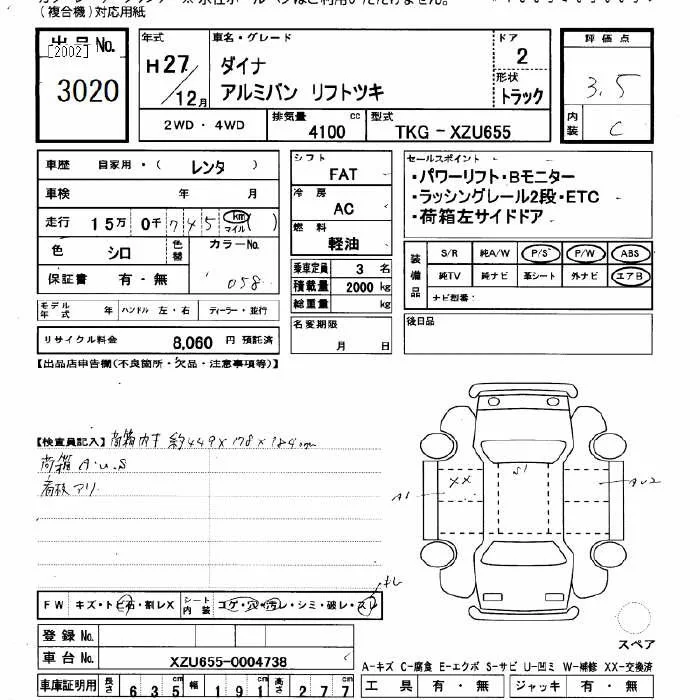 (複合機)対応用紙
出品No.
[2002]
3020
年式
H27/12月
車名・グレード
ダイナ
アルミバン リフトツキ
ドア
2
形状
トラック
評価点
3.5
内装
C
2WD・4WD
排気量
4100 cc
型式
TKG-XZU655
車歴 自家用・( レンタ )
車検 年 月
走行 15万 0千 745 km マイル ( )
色 シロ 色替 カラーNo. 058
保証書 有・無
モデル年式 年 ハンドル 左・右 ディーラー・並行
リサイクル料金 8,060 円 預託済
シフト
FAT
冷房
AC
燃料
軽油
乗車定員 3 名
積載量 2000 kg
総重量 kg
名変期限
月 日
セールスポイント
・パワーリフト・Bモニター
・ラッシングレール2段・ETC
・荷箱左サイドドア
装備品
S/R 純A/W P/S P/W ABS
純TV 純ナビ 革シート 外ナビ エアB
ナビ型番:
後日品
【出品店申告欄(不良箇所・欠品・注意事項等)】
【検査員記入】荷箱内寸 約449×178×184cm
荷箱 A.U.S
看板アリ
XX
S1
A1
AU2
FW キズ・トビ石・割レX シート内装 コゲ・穴・汚レ・シミ・破レ・スレ
キレ
登録No.
車台No. XZU655-0004738
車庫証明用 長さ 635 cm 幅 191 cm 高さ 277 cm
スペア
A-キズ C-腐食 E-エクボ S-サビ U-凹ミ W-補修 XX-交換済
工具 有・無 ジャッキ 有・無